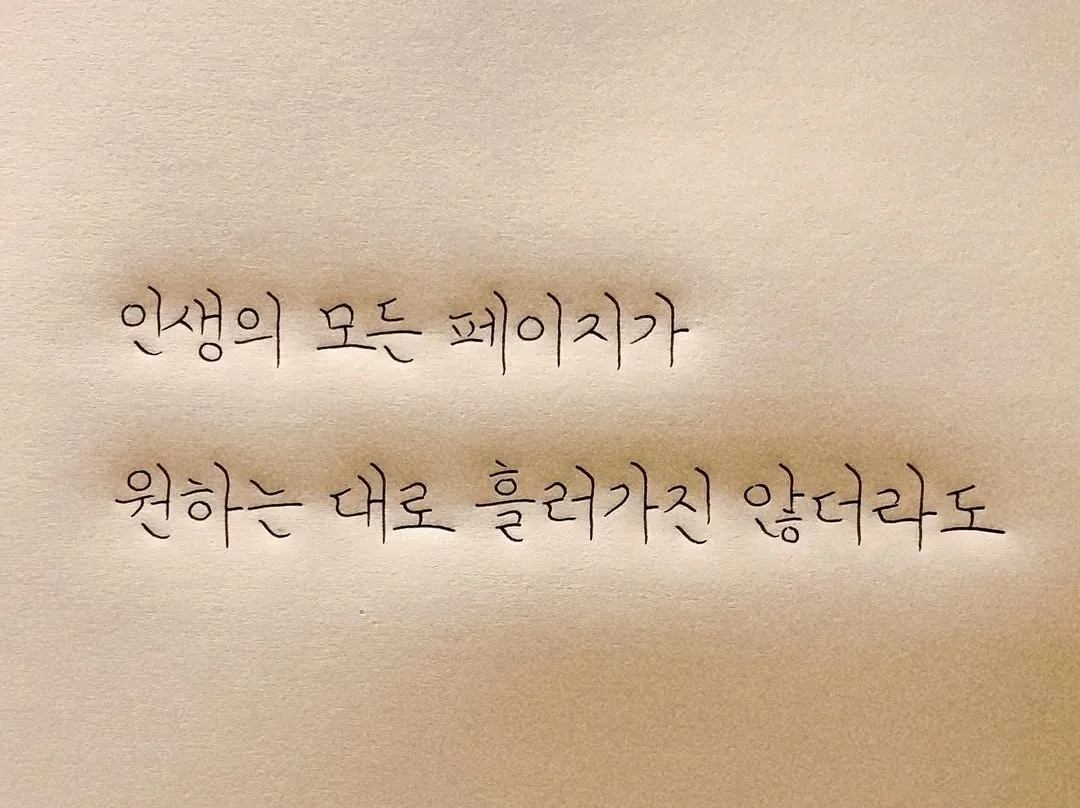 인생의 모든 페이지가
원하는 대로 흘러가진 않더라도